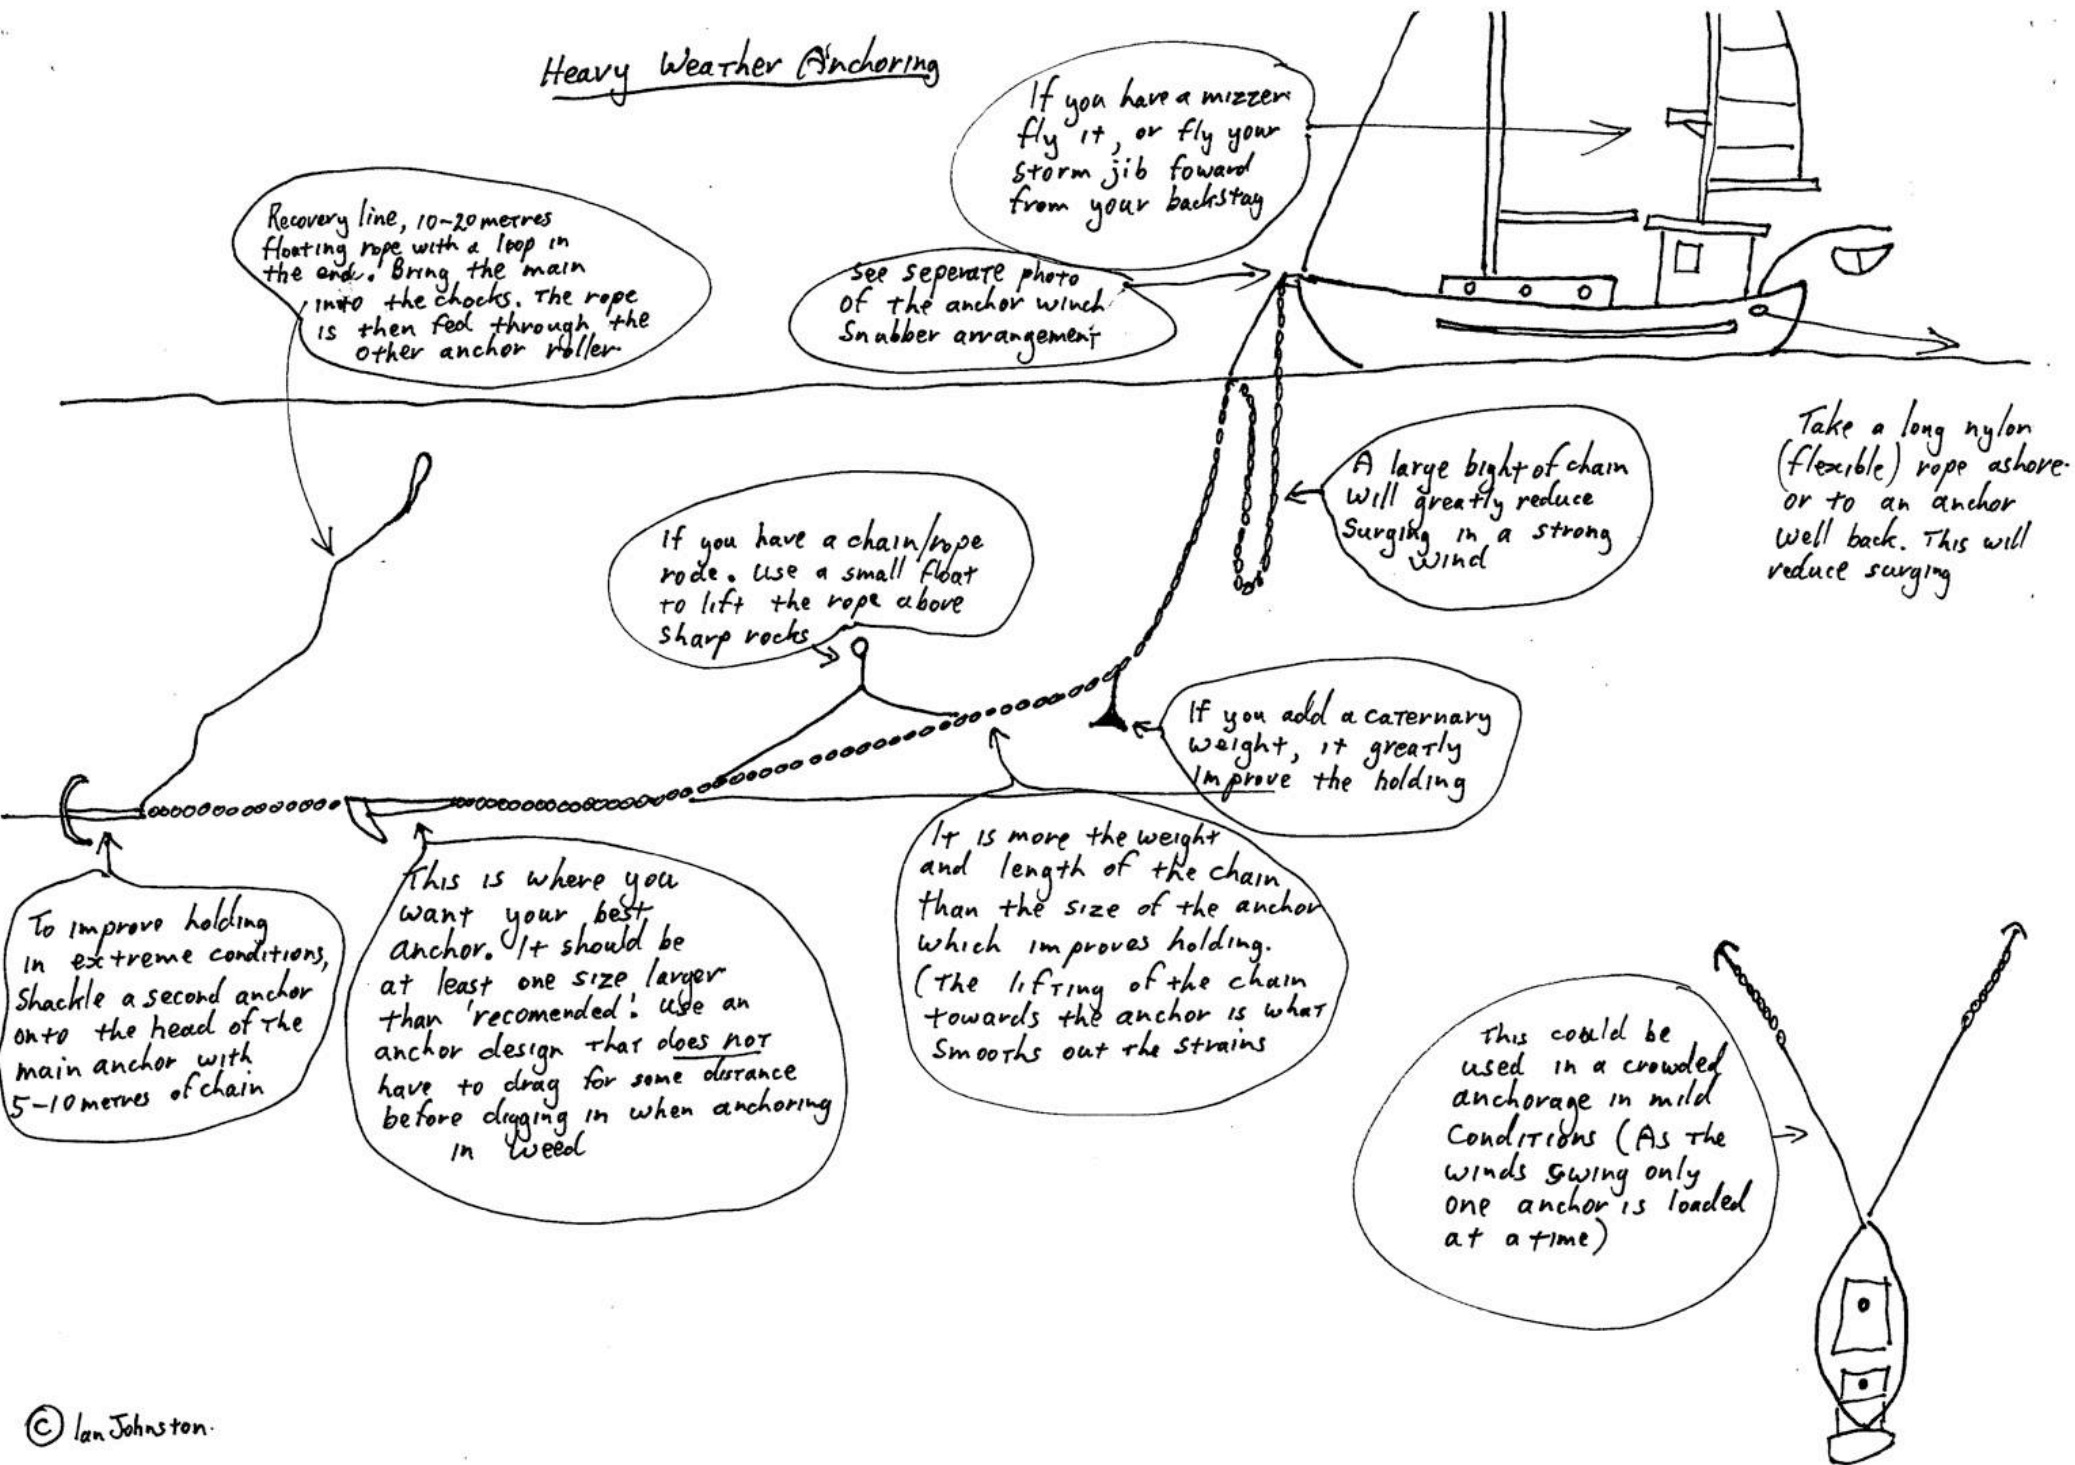 Heavy Weather Anchoring
If you have a mizzen
fly it, or fly your
storm jib foward
from your backstay
Recovery line, 10-20 metres
floating rope with a loop in
the end. Bring the main
into the chocks. The rope
is then fed through the
other anchor roller.
See seperate photo
of the anchor winch
Snubber arrangement
Take a long nylon
(flexible) rope ashore.
or to an anchor
well back. This will
reduce surging
A large bight of chain
will greatly reduce
Surging in a strong
wind
If you have a chain/rope
rode. Use a small float
to lift the rope above
sharp rocks
If you add a caternary
weight, it greatly
improve the holding
It is more the weight
and length of the chain
than the size of the anchor
which improves holding.
(The lifting of the chain
towards the anchor is what
smooths out the strains
This is where you
want your best
anchor. It should be
at least one size larger
than 'recomended'. Use an
anchor design that does not
have to drag for some distance
before digging in when anchoring
in weed
To improve holding
in extreme conditions,
Shackle a second anchor
onto the head of the
main anchor with
5-10 metres of chain
This could be
used in a crowded
anchorage in mild
conditions (As the
winds swing only
one anchor is loaded
at a time)
© Ian Johnston.